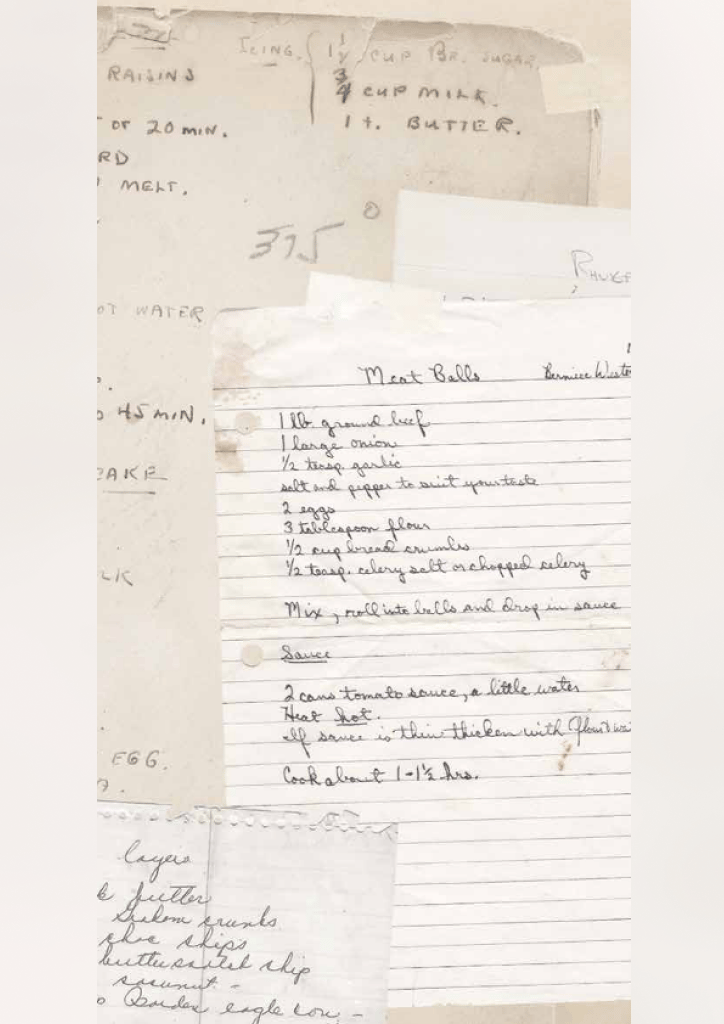 ICING. { 1 1/2 CUP BR. SUGAR.
3/4 CUP MILK.
1 t. BUTTER.
RAISINS
OR 20 MIN.
RD
MELT.
375°
OT WATER
45 MIN.
CAKE
LK
EGG.
RHUBE
Meat Balls
Bernice
1 lb. ground beef
1 large onion
1/2 teasp. garlic
salt and pepper to suit your taste
2 eggs
3 tablespoon flour
1/2 cup bread crumbs
1/2 teasp. celery salt or chopped celery
Mix, roll into balls and drop in sauce
Sauce
2 cans tomato sauce, a little water
Heat hot.
If sauce is thin thicken with flour & wa
Cook about 1-1½ hrs.
layers
k butter
Graham crumbs
choc chips
butterscotch chip
coconut -
Borden eagle con -